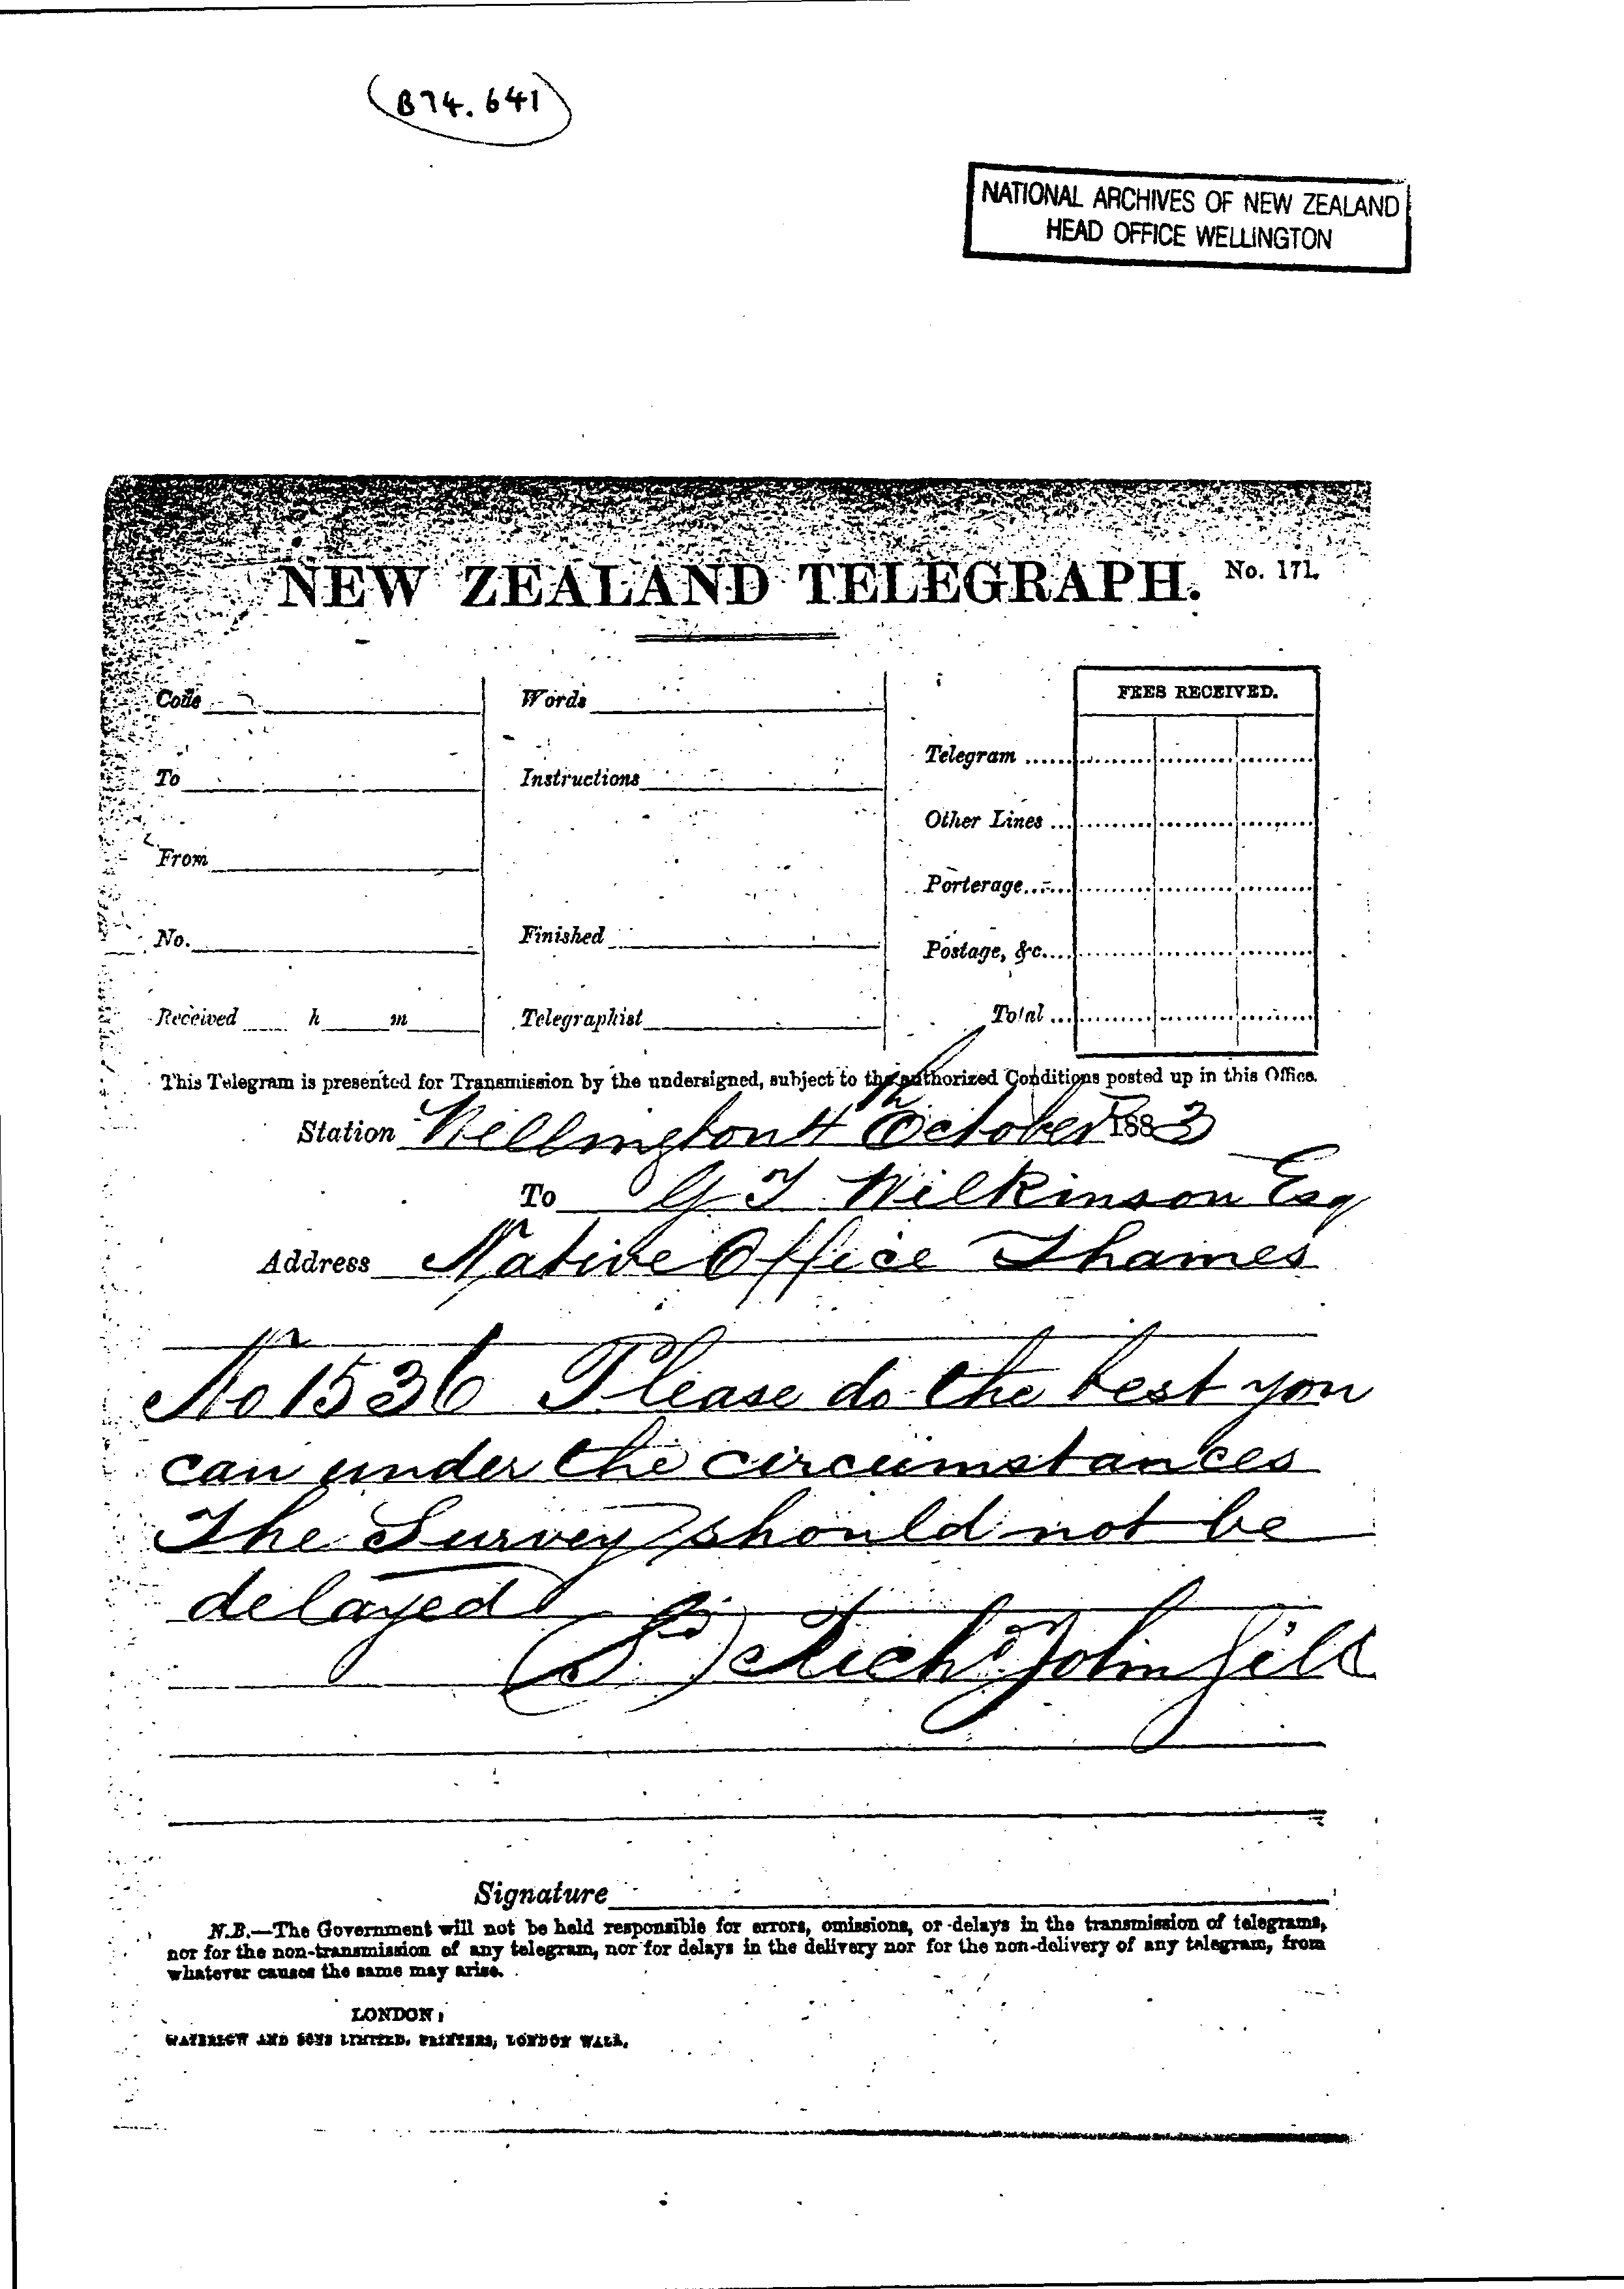 (B74.641)
NATIONAL ARCHIVES OF NEW ZEALAND
HEAD OFFICE WELLINGTON
NEW ZEALAND TELEGRAPH. No. 171.
FEES RECEIVED.
Code
Words
Telegram ......
To
Instructions
Other Lines ...
From
Porterage......
No.
Finished
Postage, &c....
Received h m
Telegraphist
Total ...
This Telegram is presented for Transmission by the undersigned, subject to the authorized Conditions posted up in this Office.
Station Wellington 4th October 1883
To G T Wilkinson Esq
Address Native Office Thames
No 1536 Please do the best you
can under the circumstances
The Survey should not be
delayed
(Sd) Richd John Gill
Signature
N.B.—The Government will not be held responsible for errors, omissions, or delays in the transmission of telegrams,
nor for the non-transmission of any telegram, nor for delays in the delivery nor for the non-delivery of any telegram, from
whatever causes the same may arise.
LONDON:
WATERLOW AND SONS LIMITED, PRINTERS, LONDON WALL.